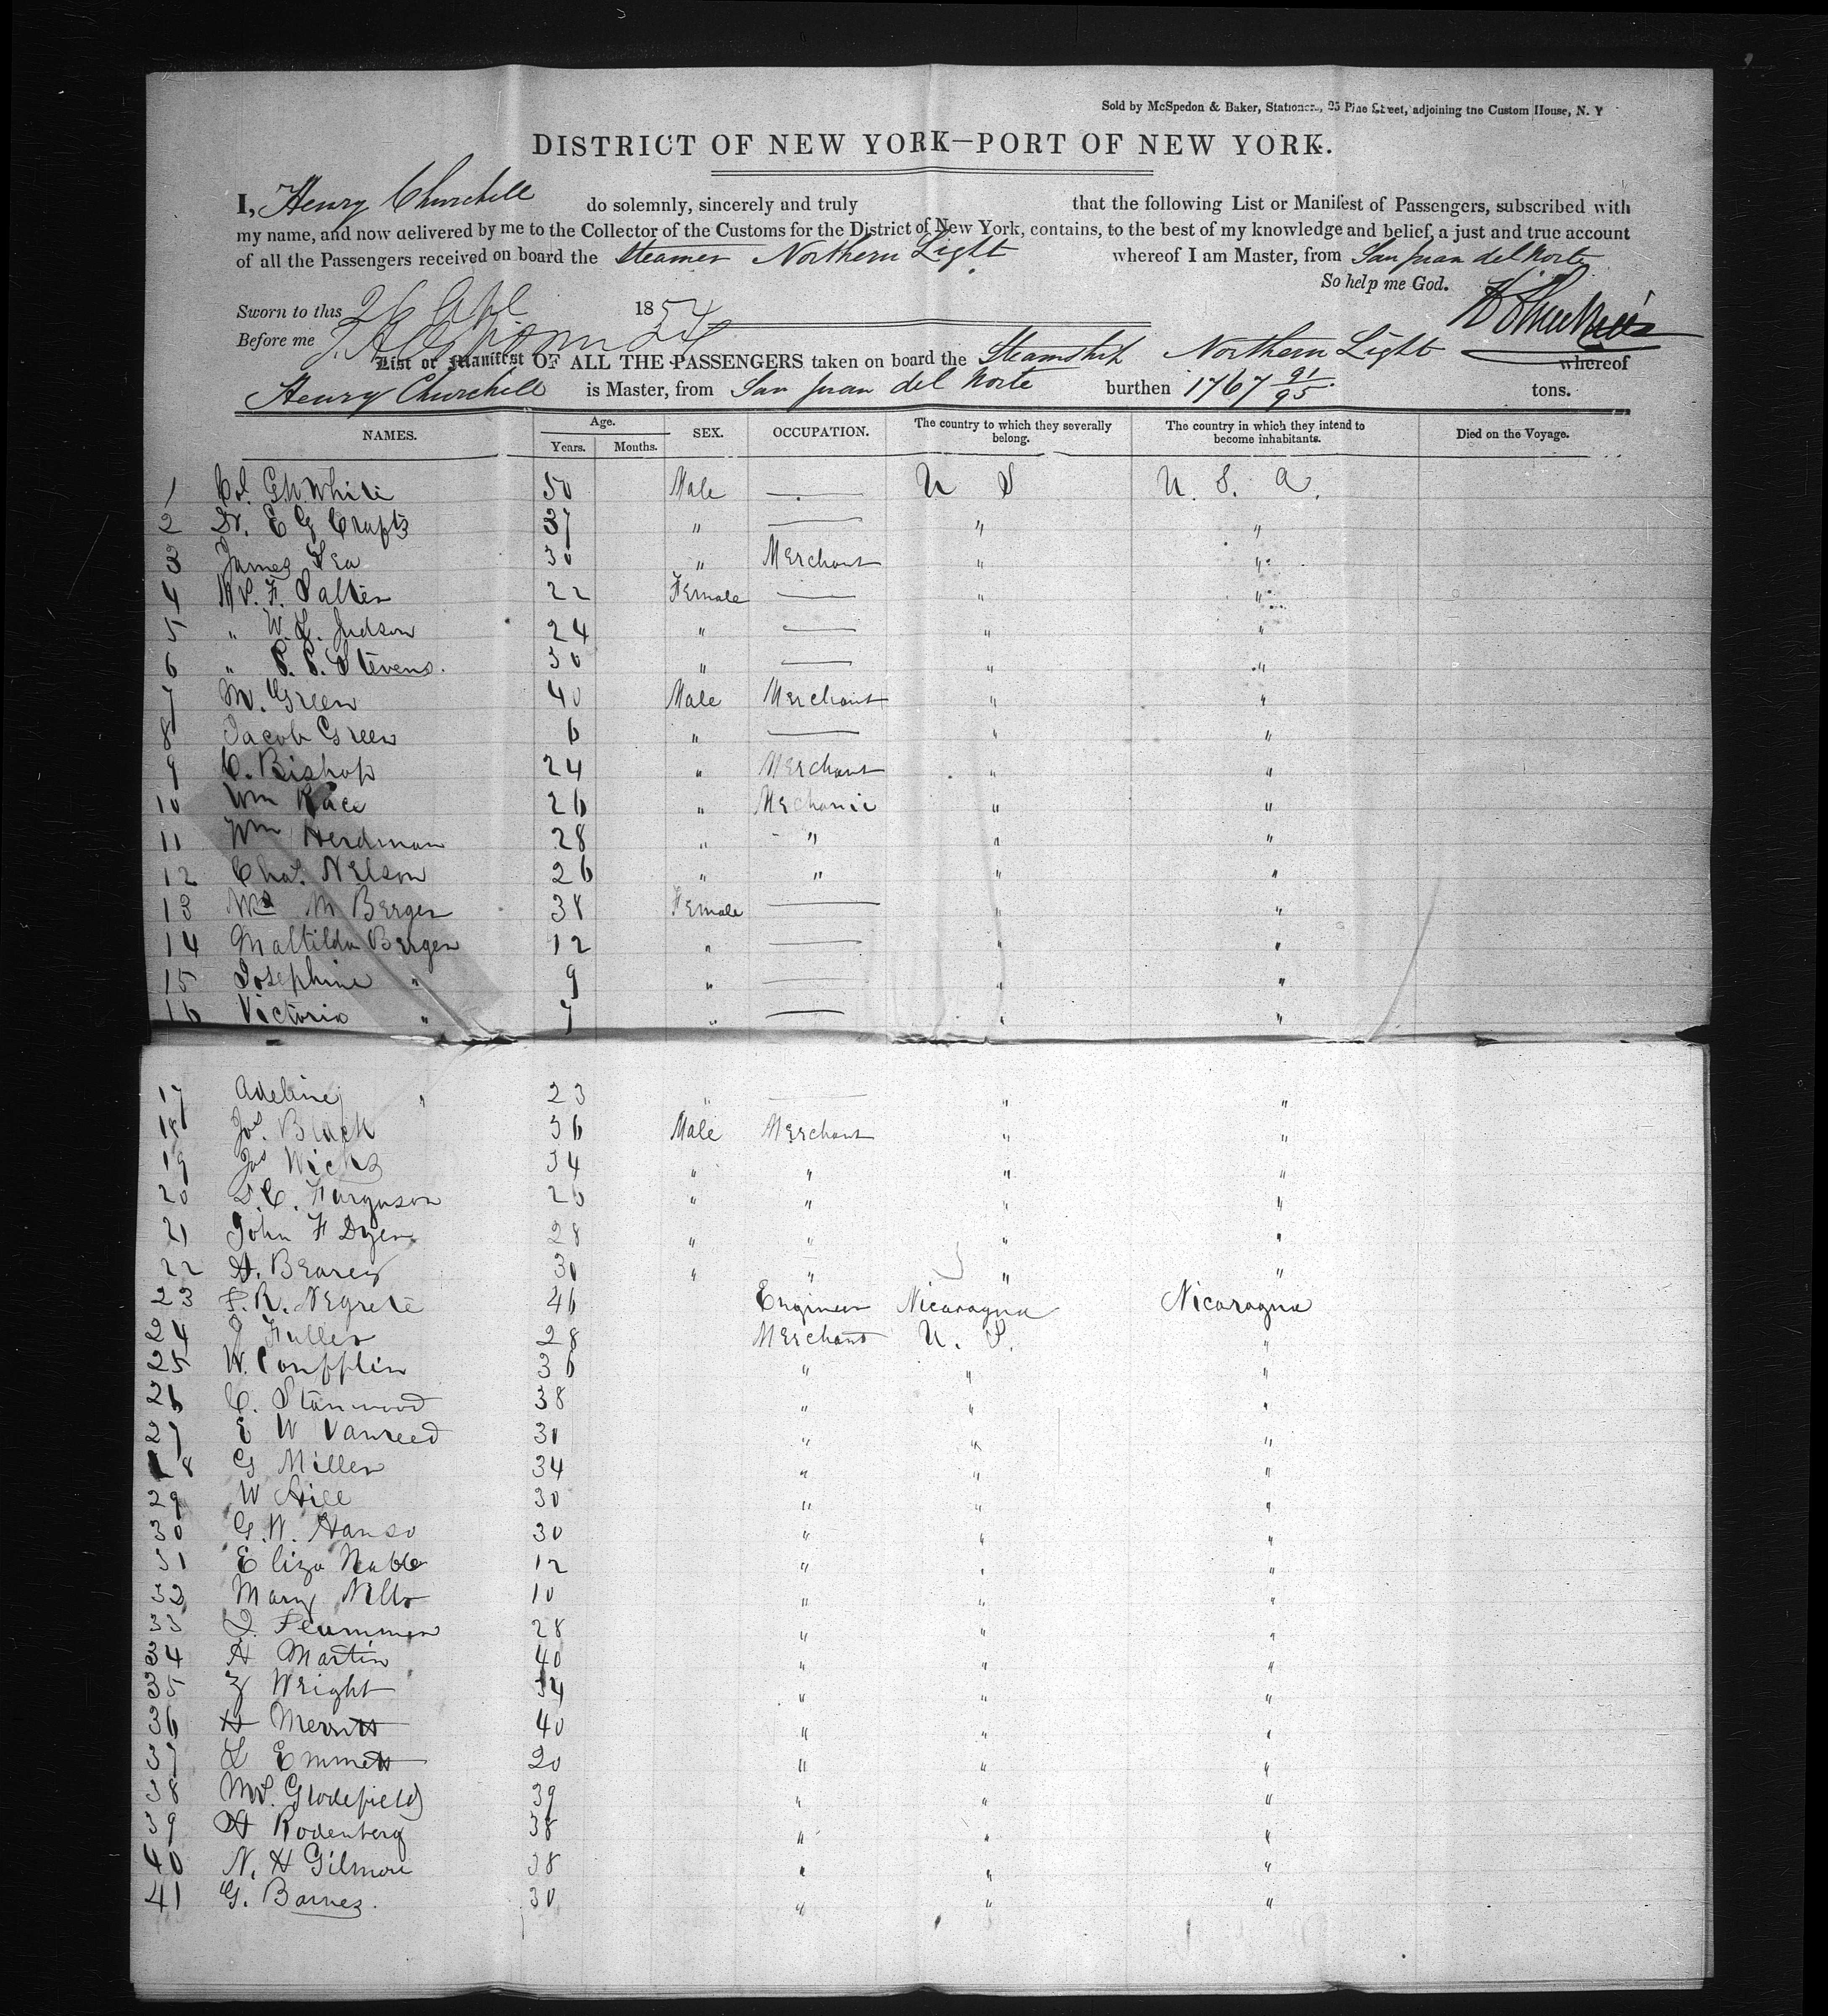 Sold by McSpedon & Baker, Stationers, 25 Pine Street, adjoining the Custom House, N. Y
DISTRICT OF NEW YORK—PORT OF NEW YORK.
I, Henry Churchill do solemnly, sincerely and truly that the following List or Manifest of Passengers, subscribed with
my name, and now delivered by me to the Collector of the Customs for the District of New York, contains, to the best of my knowledge and belief, a just and true account
of all the Passengers received on board the Steamer Northern Light whereof I am Master, from San Juan del Norte
So help me God.
Sworn to this 26 Apl 1854 H Churchill
Before me
List or Manifest OF ALL THE PASSENGERS taken on board the Steamship Northern Light whereof
Henry Churchill is Master, from San Juan del Norte burthen 1767 91/95 tons.
NAMES. Age. Years. Months. SEX. OCCUPATION. The country to which they severally belong. The country in which they intend to become inhabitants. Died on the Voyage.
1 Col. G W White 50 Male — U S U. S. A.
2 Dr. E G Crafts 37 " — " "
3 James Lea 30 " Merchant " "
4 Mrs. F. Salter 22 Female — " "
5 " W. L. Judson 24 " — " "
6 " P. P. Stevens. 30 " — " "
7 M. Green 40 Male Merchant " "
8 Jacob Green 6 " — " "
9 C. Bishop 24 " Merchant " "
10 Wm Race 26 " Mechanic " "
11 Wm Herdman 28 " " " "
12 Chas. Nelson 26 " " " "
13 Mrs M Bergen 38 Female — " "
14 Maltilda Bergen 12 " — " "
15 Josephine " 9 " — " "
16 Victoria " 7 " — " "
17 Adeline " 23 " — " "
18 Jos. Black 36 Male Merchant " "
19 Jas Wicks 34 " " " "
20 D. C. Farguson 26 " " " "
21 John F Dyer 28 " " " "
22 H. Bearey 30 " " " "
23 F. R. Negrete 46 Engineer Nicaragua Nicaragua
24 J Fuller 28 Merchant U. S. "
25 W. 36 " " "
26 C. Stanwood 38 " " "
27 E W Vanreed 31 " " "
28 G Miller 34 " " "
29 W Hill 30 " " "
30 G. W. Hanso 30 " " "
31 Eliza Nable 12 " " "
32 Mary 10 " " "
33 28 " " "
34 H Martin 40 " " "
35 Z Wright 34 " " "
36 H Merritt 40 " " "
37 L Emmett 20 " " "
38 Mrs. Glodefield 39 " " "
39 H Rodenberg 38 " " "
40 N. H Gilmore 38 " " "
41 G. Barnes. 30 " " "